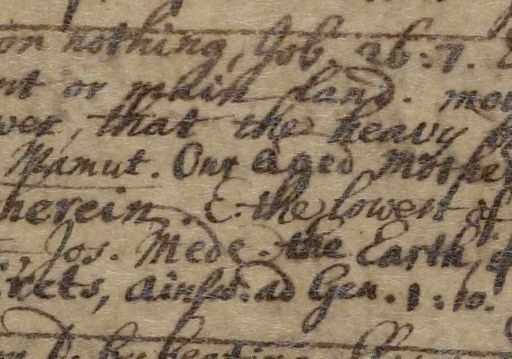 on nothing, Job. 26:7.
nt or main land. mo
wer, that the heavy
Mamut. Our aged Mothe
herein. & the lowest of
Jos. Mede. the Earth,
rets, Ainsw. ad Gen. 1:10.